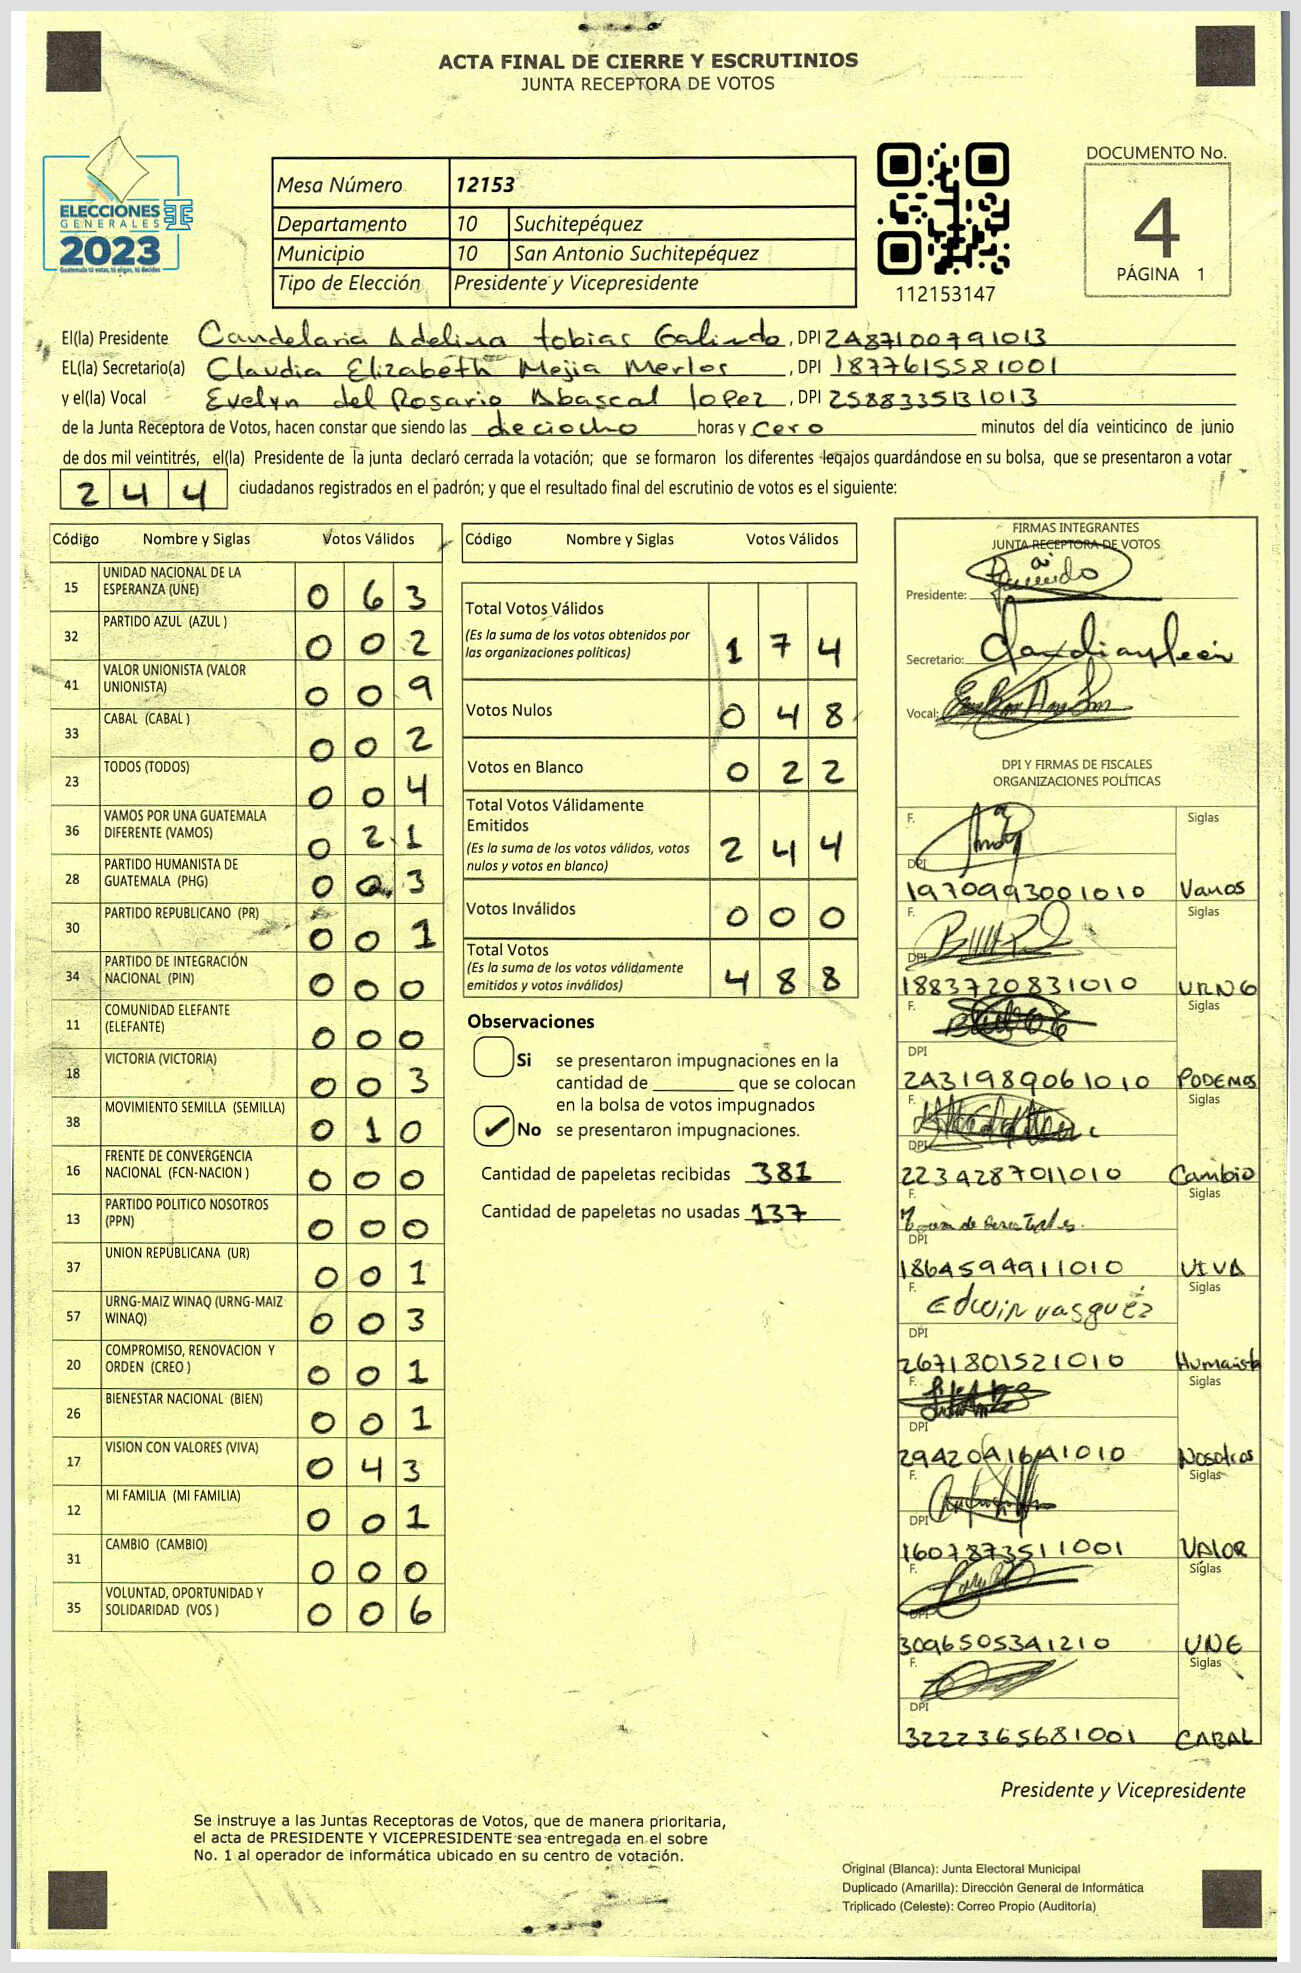 ACTA FINAL DE CIERRE Y ESCRUTINIOS
JUNTA RECEPTORA DE VOTOS
ELECCIONES
GENERALES
2023
Guatemala tú votas, tú eliges, tú decides
Mesa Número 12153
Departamento 10 Suchitepéquez
Municipio 10 San Antonio Suchitepéquez
Tipo de Elección Presidente y Vicepresidente
112153147
DOCUMENTO No.
4
PÁGINA 1
El(la) Presidente Candelaria Adelina tobias Galindo, DPI 2487100791013
EL(la) Secretario(a) Claudia Elizabeth Mejia Merlos, DPI 1877615581001
y el(la) Vocal Evelyn del Rosario Abascal lopez, DPI 2588335131013
de la Junta Receptora de Votos, hacen constar que siendo las deciocho horas y cero minutos del día veinticinco de junio
de dos mil veintitrés, el(la) Presidente de la junta declaró cerrada la votación; que se formaron los diferentes legajos guardándose en su bolsa, que se presentaron a votar
244 ciudadanos registrados en el padrón; y que el resultado final del escrutinio de votos es el siguiente:
Código Nombre y Siglas Votos Válidos
15 UNIDAD NACIONAL DE LA ESPERANZA (UNE) 0 6 3
32 PARTIDO AZUL (AZUL ) 0 0 2
41 VALOR UNIONISTA (VALOR UNIONISTA) 0 0 9
33 CABAL (CABAL ) 0 0 2
23 TODOS (TODOS) 0 0 4
36 VAMOS POR UNA GUATEMALA DIFERENTE (VAMOS) 0 2 1
28 PARTIDO HUMANISTA DE GUATEMALA (PHG) 0 0 3
30 PARTIDO REPUBLICANO (PR) 0 0 1
34 PARTIDO DE INTEGRACIÓN NACIONAL (PIN) 0 0 0
11 COMUNIDAD ELEFANTE (ELEFANTE) 0 0 0
18 VICTORIA (VICTORIA) 0 0 3
38 MOVIMIENTO SEMILLA (SEMILLA) 0 1 0
16 FRENTE DE CONVERGENCIA NACIONAL (FCN-NACION ) 0 0 0
13 PARTIDO POLITICO NOSOTROS (PPN) 0 0 0
37 UNION REPUBLICANA (UR) 0 0 1
57 URNG-MAIZ WINAQ (URNG-MAIZ WINAQ) 0 0 3
20 COMPROMISO, RENOVACION Y ORDEN (CREO ) 0 0 1
26 BIENESTAR NACIONAL (BIEN) 0 0 1
17 VISION CON VALORES (VIVA) 0 4 3
12 MI FAMILIA (MI FAMILIA) 0 0 1
31 CAMBIO (CAMBIO) 0 0 0
35 VOLUNTAD, OPORTUNIDAD Y SOLIDARIDAD (VOS ) 0 0 6
Código Nombre y Siglas Votos Válidos
Total Votos Válidos
(Es la suma de los votos obtenidos por
las organizaciones políticas) 1 7 4
Votos Nulos 0 4 8
Votos en Blanco 0 2 2
Total Votos Válidamente
Emitidos
(Es la suma de los votos válidos, votos
nulos y votos en blanco) 2 4 4
Votos Inválidos 0 0 0
Total Votos
(Es la suma de los votos válidamente
emitidos y votos inválidos) 4 8 8
Observaciones
Si se presentaron impugnaciones en la
cantidad de ________ que se colocan
en la bolsa de votos impugnados
No se presentaron impugnaciones.
Cantidad de papeletas recibidas 381
Cantidad de papeletas no usadas 137
FIRMAS INTEGRANTES
JUNTA RECEPTORA DE VOTOS
Presidente:
Secretario:
Vocal:
DPI Y FIRMAS DE FISCALES
ORGANIZACIONES POLÍTICAS
F. Siglas
DPI
1970993001010 Vamos
F. Siglas
DPI
1883720831010 URNG
F. Siglas
DPI
2431989061010 PODEMOS
F. Siglas
DPI
2234287011010 Cambio
F. Siglas
DPI
1864594911010 VIVA
F. Edwin vasquez Siglas
DPI
2671801521010 Humanista
F. Siglas
DPI
2942041641010 Nosotros
F. Siglas
DPI
1607873511001 VALOR
F. Siglas
DPI
3096505341210 UNE
F. Siglas
DPI
3222365681001 CABAL
Presidente y Vicepresidente
Se instruye a las Juntas Receptoras de Votos, que de manera prioritaria,
el acta de PRESIDENTE Y VICEPRESIDENTE sea entregada en el sobre
No. 1 al operador de informática ubicado en su centro de votación.
Original (Blanca): Junta Electoral Municipal
Duplicado (Amarilla): Dirección General de Informática
Triplicado (Celeste): Correo Propio (Auditoría)